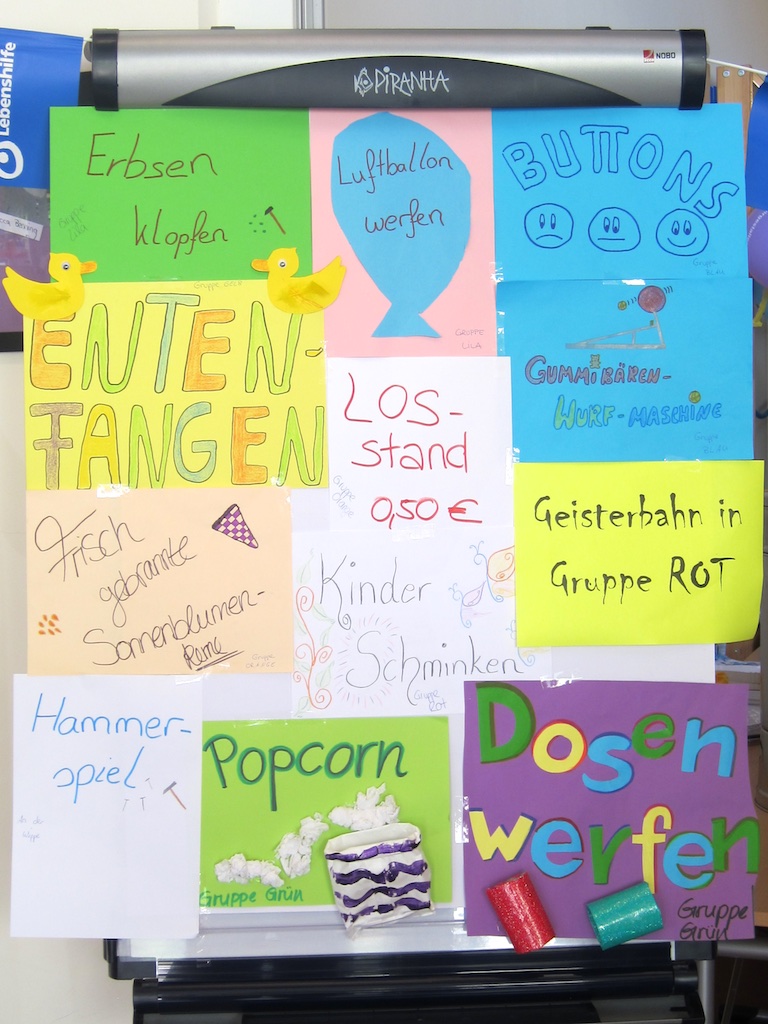 Lebenshilfe
NOBO
PIRANHA
Erbsen
klopfen
Gruppe
Lila
Luftballon
werfen
GRUPPE
LILA
BUTTONS
Gruppe
BLAU
Gruppe Grün
ENTEN-
FANGEN
GUMMIBÄREN-
WURF-MASCHINE
Gruppe
BLAU
LOS-
stand
0,50 €
Gruppe
Orange
Geisterbahn in
Gruppe ROT
Frisch
gebrannte
Sonnenblumen-
Kerne
Gruppe
ORANGE
Kinder
Schminken
Gruppe
ROT
Hammer-
spiel
Popcorn
Gruppe Grün
Dosen
werfen
Gruppe
Grün